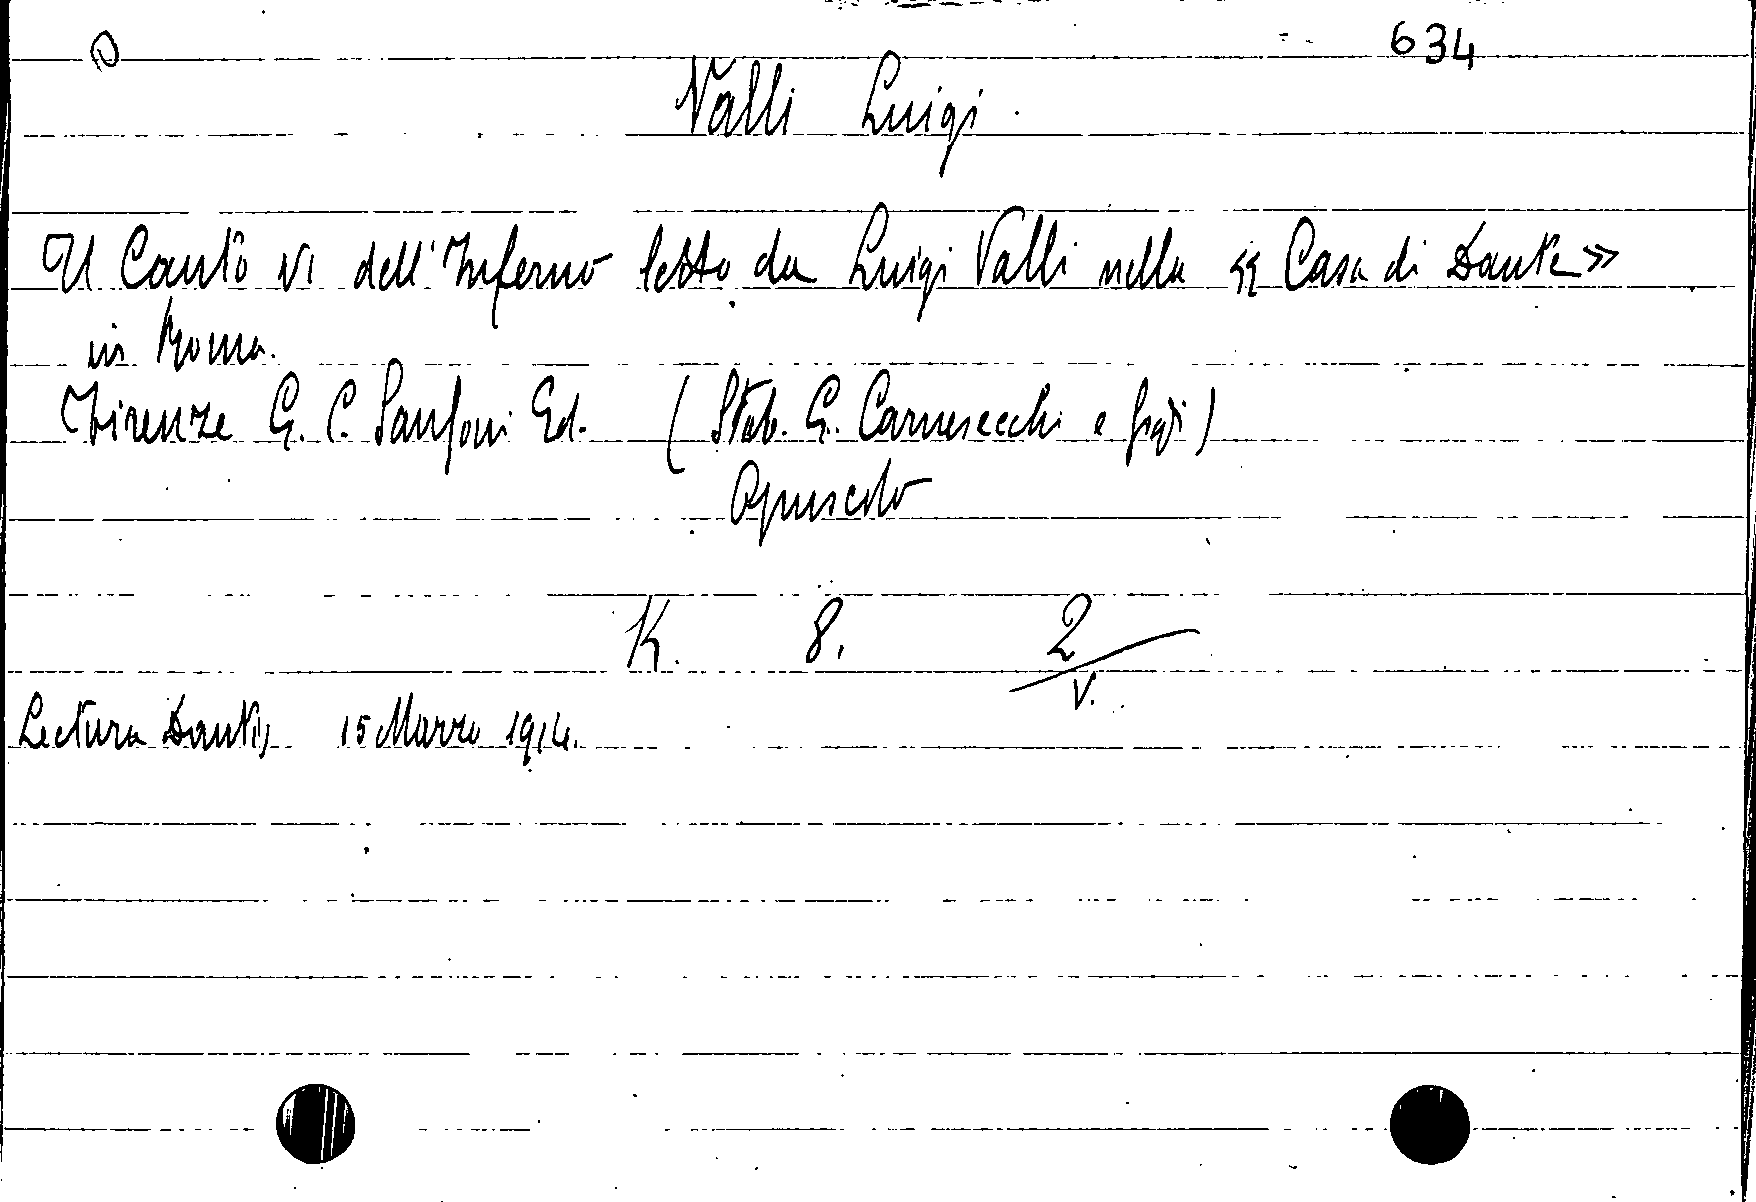 634
Valli Luigi.
Il Canto VI dell'Inferno letto da Luigi Valli nella « Casa di Dante »
in Roma.
Firenze G. C. Sansoni Ed. (Stab. G. Carnesecchi e figli)
Opuscolo
K. 8. 2/V.
Lectura Dantis, 15 Marzo 1914.